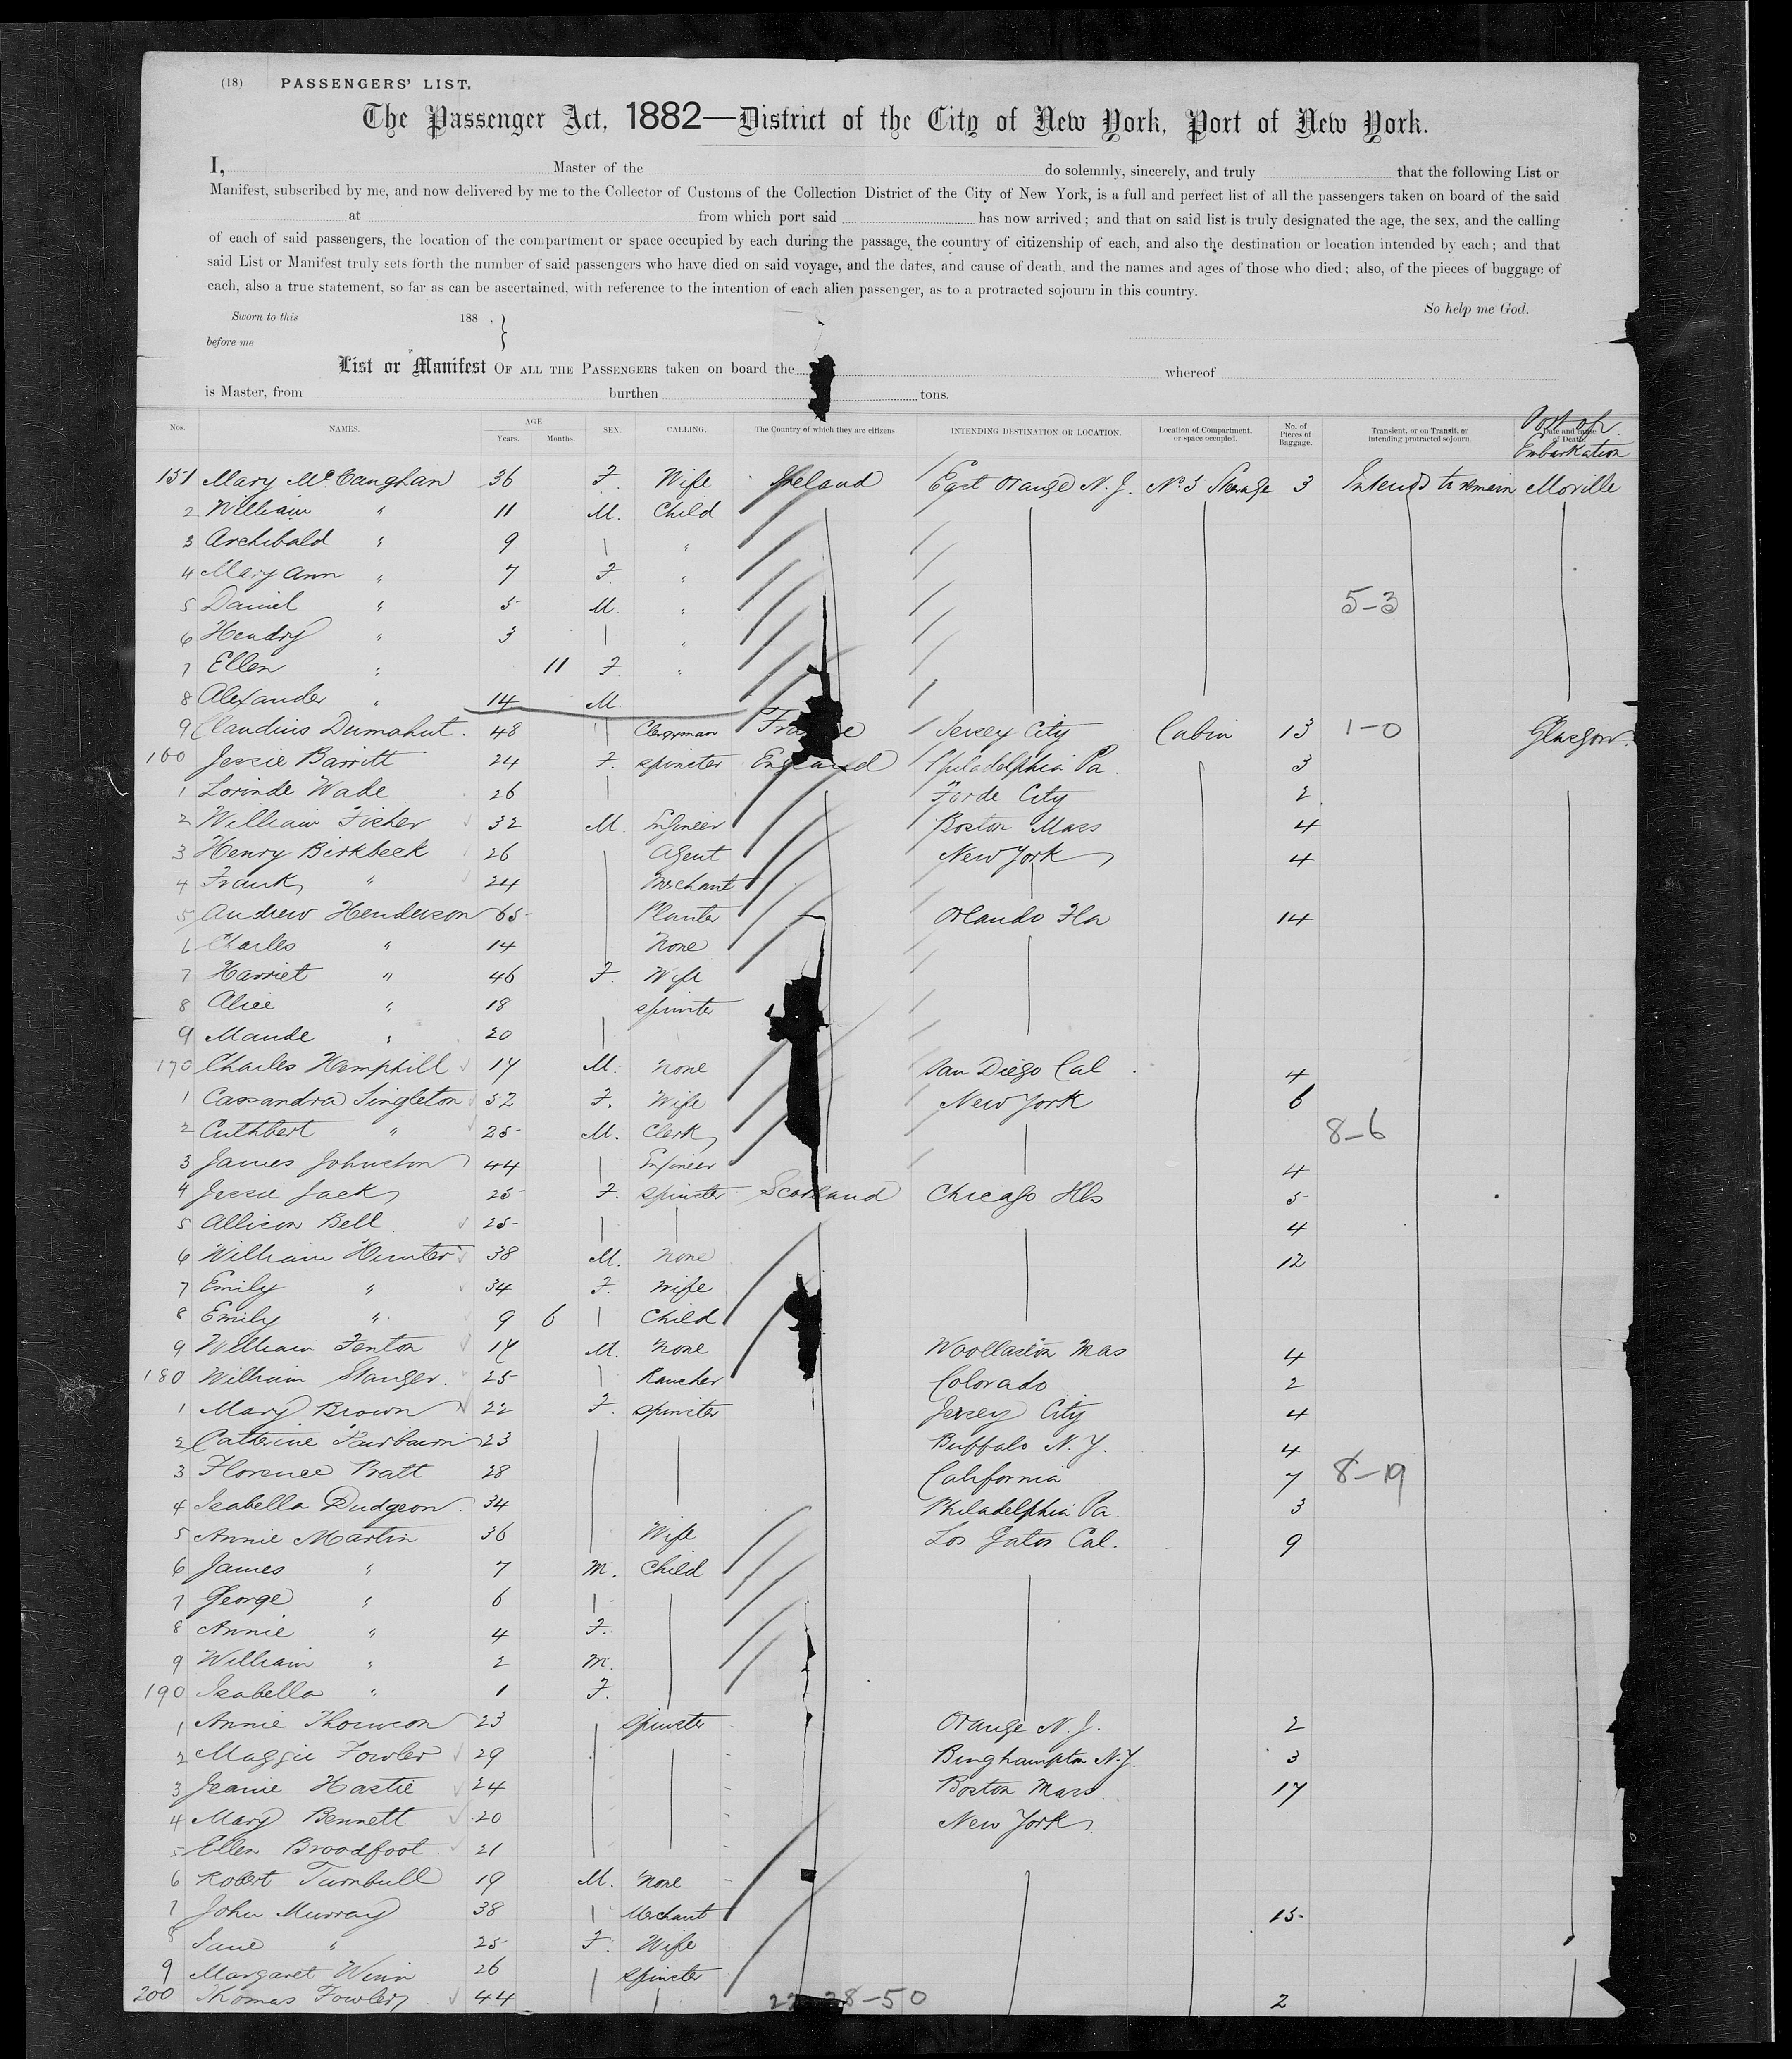 (18) PASSENGERS' LIST.
The Passenger Act, 1882—District of the City of New York, Port of New York.
I, Master of the do solemnly, sincerely, and truly that the following List or
Manifest, subscribed by me, and now delivered by me to the Collector of Customs of the Collection District of the City of New York, is a full and perfect list of all the passengers taken on board of the said
at from which port said has now arrived; and that on said list is truly designated the age, the sex, and the calling
of each of said passengers, the location of the compartment or space occupied by each during the passage, the country of citizenship of each, and also the destination or location intended by each; and that
said List or Manifest truly sets forth the number of said passengers who have died on said voyage, and the dates, and cause of death, and the names and ages of those who died; also, of the pieces of baggage of
each, also a true statement, so far as can be ascertained, with reference to the intention of each alien passenger, as to a protracted sojourn in this country.
So help me God.
Sworn to this 188 . }
before me
List or Manifest OF ALL THE PASSENGERS taken on board the whereof
is Master, from burthen tons.
Nos. NAMES. AGE Years. Months. SEX. CALLING. The Country of which they are citizens INTENDING DESTINATION OR LOCATION. Location of Compartment, or space occupied. No. of Pieces of Baggage. Transient, or on Transit, or intending protracted sojourn Date and Cause of Death. Port of Embarkation
151 Mary McCaughan 36 F. Wife Ireland East Orange N.J. No. 5 Steerage 3 Intends to remain Moville
2 William " 11 M. Child
3 Archibald " 9 | "
4 Mary Ann " 7 F. "
5 Daniel " 5 M. " 5-3
6 Hendry " 3 | "
7 Ellen " 11 F. "
8 Alexander " 14 M.
9 Claudius Dumahut. 48 | Clergyman France Jersey City Cabin 13 1-0 Glasgow.
160 Jessie Barritt 24 F. Spinster England Philadelphia Pa. 3
1 Lorinde Wade 26 | City 2
2 William Fisher 32 M. Engineer Boston Mass 4
3 Henry Birkbeck 26 Agent New York 4
4 Frank " 24 Merchant
5 Andrew Henderson 65 Planter Orlando Fla 14
6 Charles " 14 None
7 Harriet " 46 F. Wife
8 Alice " 18 Spinster
9 Maude " 20 |
170 Charles Hemphill 17 M. None San Diego Cal 4
1 Cassandra Singleton 52 F. Wife New York 6
2 Cuthbert " 25 M. Clerk 8-6
3 James Johnston 44 | Engineer 4
4 Jessie Jack 25 F. Spinster Scotland Chicago Ills 5
5 Allison Bell 25 | | 4
6 William Hunter 38 M. None 12
7 Emily " 34 F. Wife
8 Emily " 9 6 | Child
9 William Fenton 17 M. None Woollaston Mas 4
180 William Stanger. 25 | Rancher Colorado 2
1 Mary Brown 22 F. Spinster Jersey City 4
2 Catherine Fairbairn 23 Buffalo N.Y. 4
3 Florence Pratt 28 California 7 8-19
4 Isabella Dudgeon 34 Philadelphia Pa. 3
5 Annie Martin 36 Wife Los Gatos Cal. 9
6 James " 7 M. Child
7 George " 6 |
8 Annie " 4 F.
9 William " 2 M.
190 Isabella " 1 F.
1 Annie Thomson 23 Spinster Orange N.J. 2
2 Maggie Fowler 29 Binghampton N.Y. 3
3 Jeanie Hastie 24 Boston Mass. 17
4 Mary Bennett 20 New York
5 Ellen Broadfoot 21
6 Robert Turnbull 19 M. None
7 John Murray 38 | Merchant 15
8 Jane " 25 F. Wife
9 Margaret Winn 26 | Spinster
200 Thomas Fowler 44 | | 2
28-50